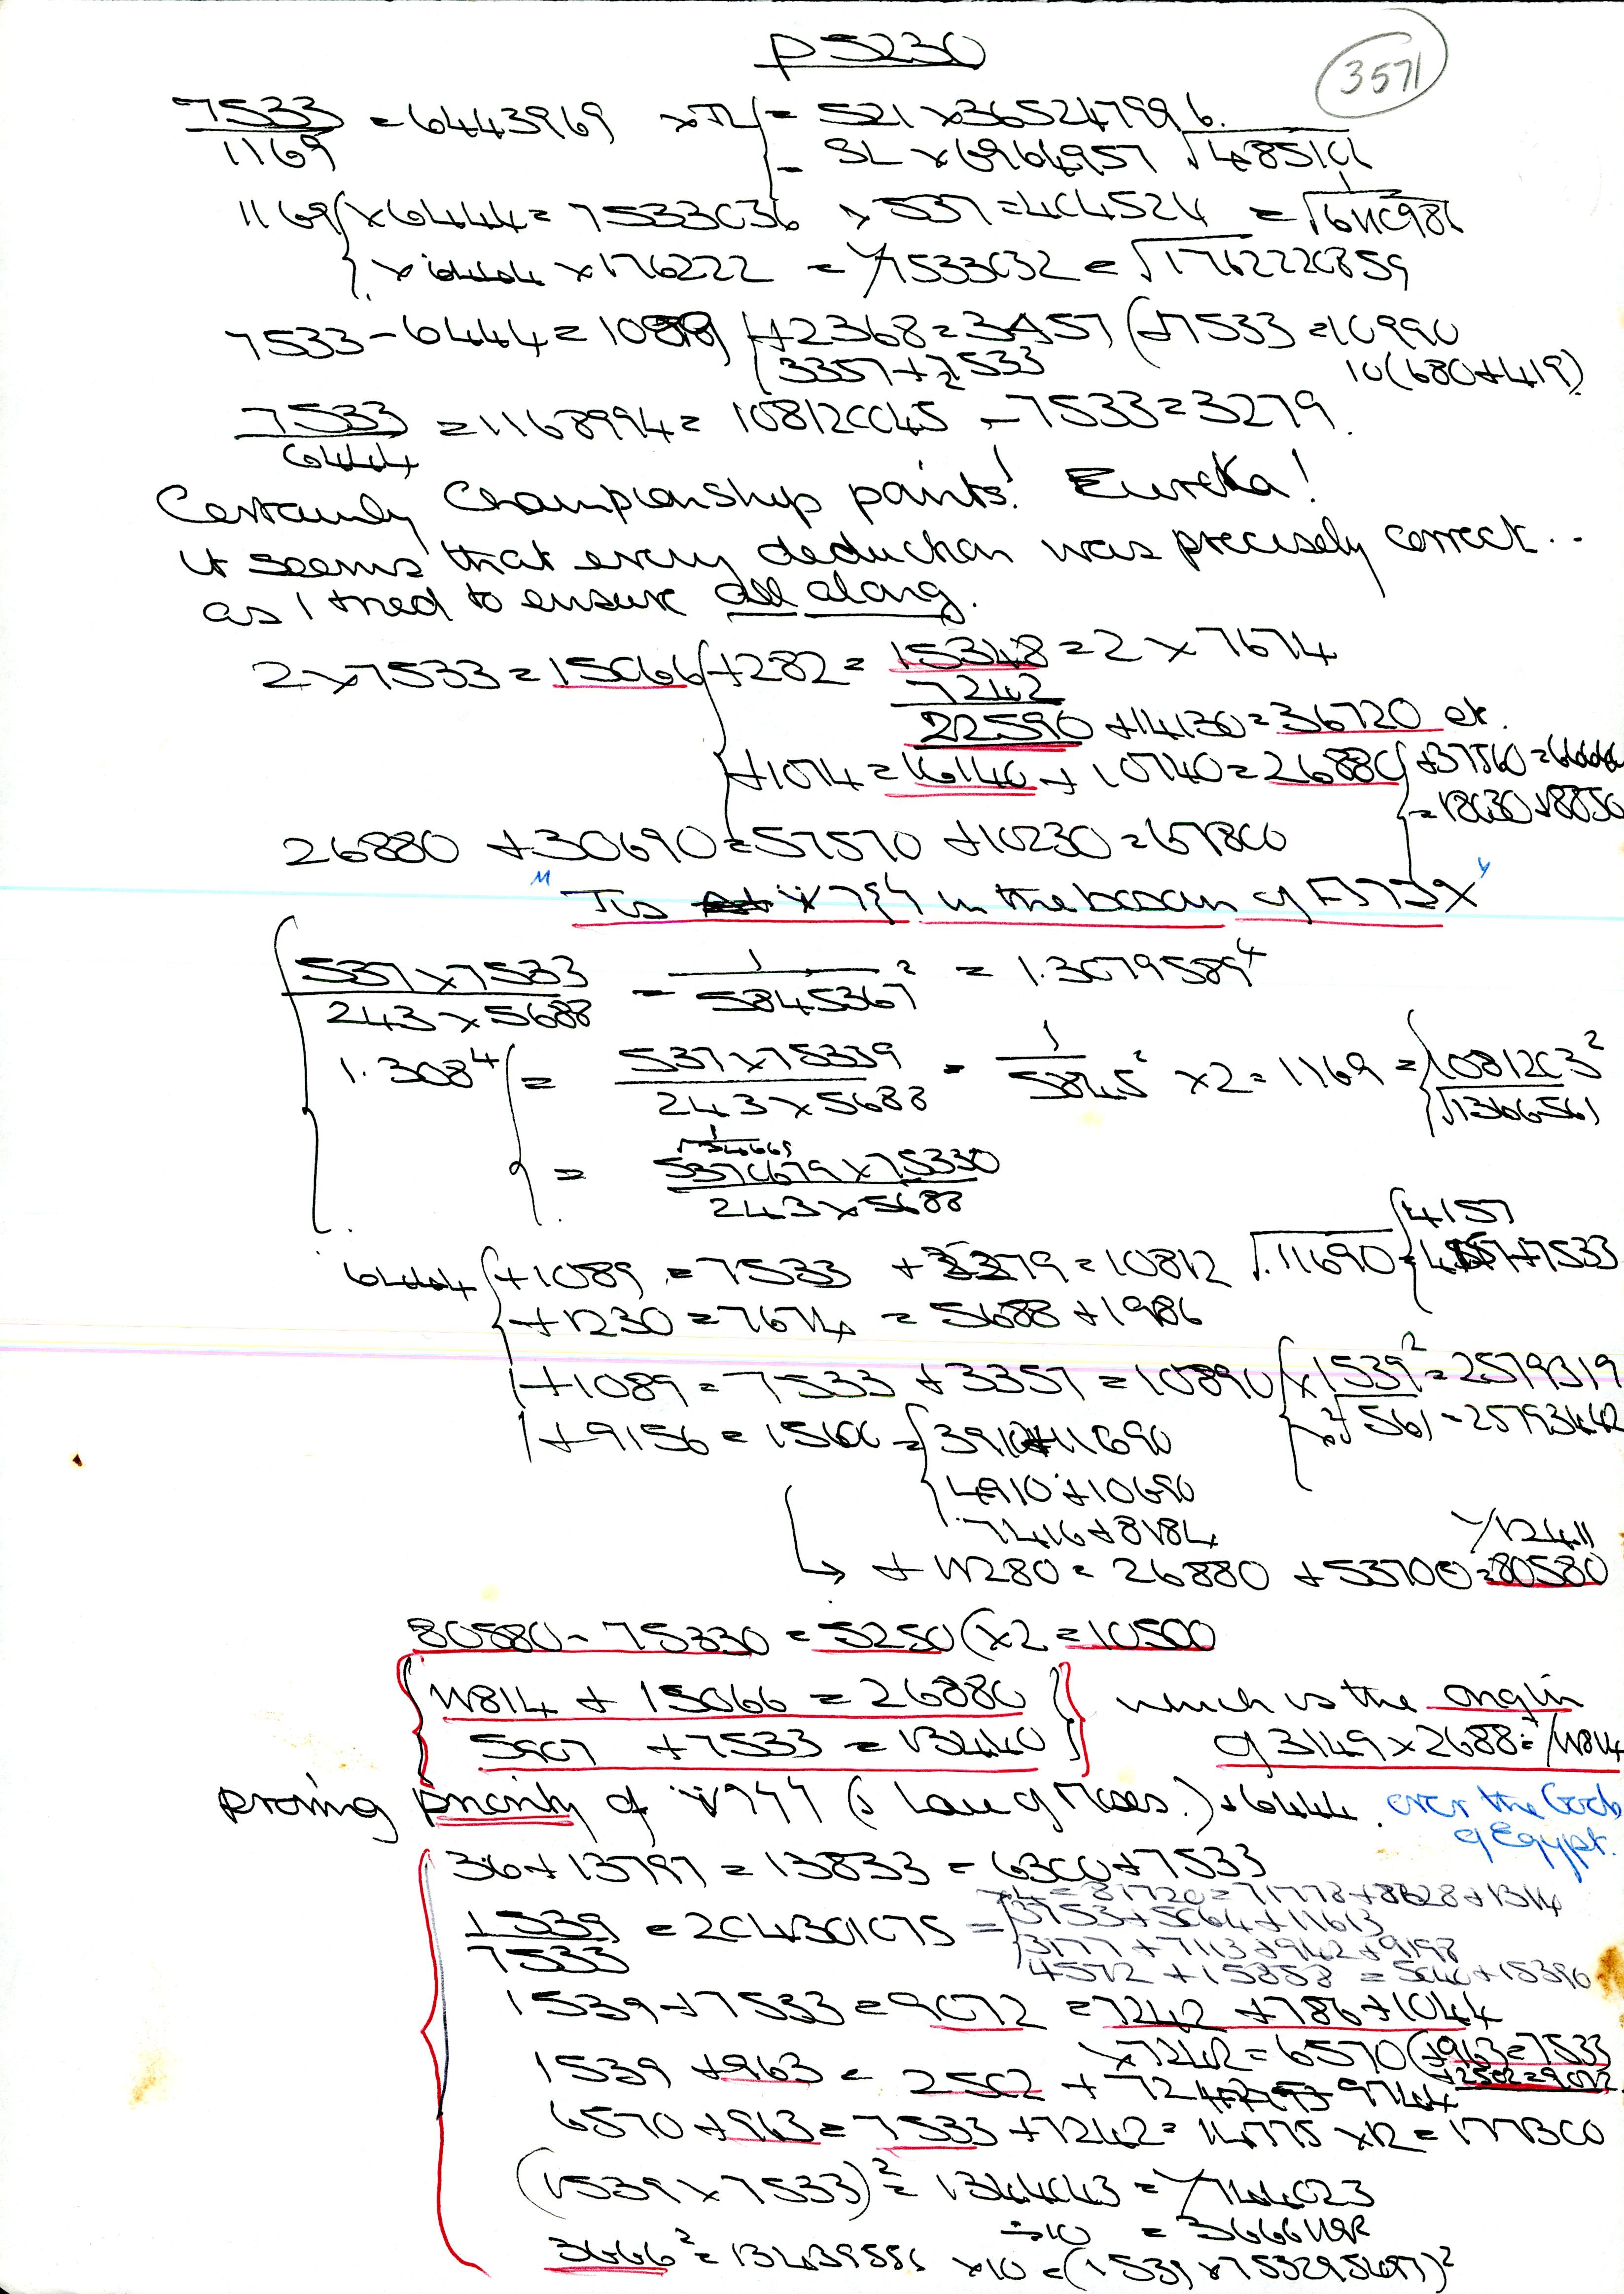 p5230
3571
7533/1169 = 6443969 × π = 521 × 365247996
= SL × 6964957 √48510
1169 × 6444 = 7533036 × 537 = 404524
× 6444 × 176222 = 1/7533032 = √1762220859
7533 - 6444 = 1089 +2368 = 3457 (+7533 = 10990
3357 + 7533
10(680+419)
7533/6444 = 1168994 = 108120045 - 7533 = 3279.
Certainly Championship points! Eureka!
It seems that every deduction was precisely correct..
as I tried to ensure all along.
2 × 7533 = 15066 +282 = 15348 = 2 × 7674
7242
22590 + 14130 = 36720 et.
+1074 = 16140 + 10740 = 26880 +37560 =
= 18030 + 8850
26880 + 30690 = 57570 + 10230 = 67800
in the bosom of
537 × 7533 / 243 × 5688 = 1/5845367² = 1.3079589⁴
1.308⁴ = 537 × 75339 / 243 × 5688 = 1/5845² × 2 = 1169 = 1081203²
√1366561
= 5370679 × 75330 / 243 × 5688
6444 +1089 = 7533 + 3279 = 10812 √11690 4157
+1230 = 7674 = 5688 + 1986
+1089 = 7533 + 3357 = 10890 × 1539² = 2579319
+9156 = 15600 = 3910 + 11690
4910 + 10690
7416 + 8184
1/12411
→ + 11280 = 26880 + 53700 = 80580
80580 - 75330 = 5250 (×2 = 10500
11814 + 15066 = 26880 which is the origin
5907 + 7533 = 13440 of 3149 × 2688 = 1/11814
proving priority of (& Law of Moses.) & 6444. over the Gods
of Egypt.
36 + 13797 = 13833 = 6300 + 7533
×4 = 81720 = 71778 + 8628 + 1314
1539/7533 = 204301075 = 3753 + 5064 + 11613
3177 + 7113 + 942 + 9198
4572 + 15858 = 5040 + 15390
1539 + 7533 = 9072 = 7242 + 786 + 1044
×7242 = 6570 (+963 = 7533
+2502 = 9072
1539 + 963 = 2502 + 7242
6570 + 963 = 7533 + 7242 = 14775 × 12 = 177300
(1539 × 7533)² = 1344043 = 1/744023
÷10 = 36661192
3666² = 13439556 × 10 = (1539 × 753295697)²